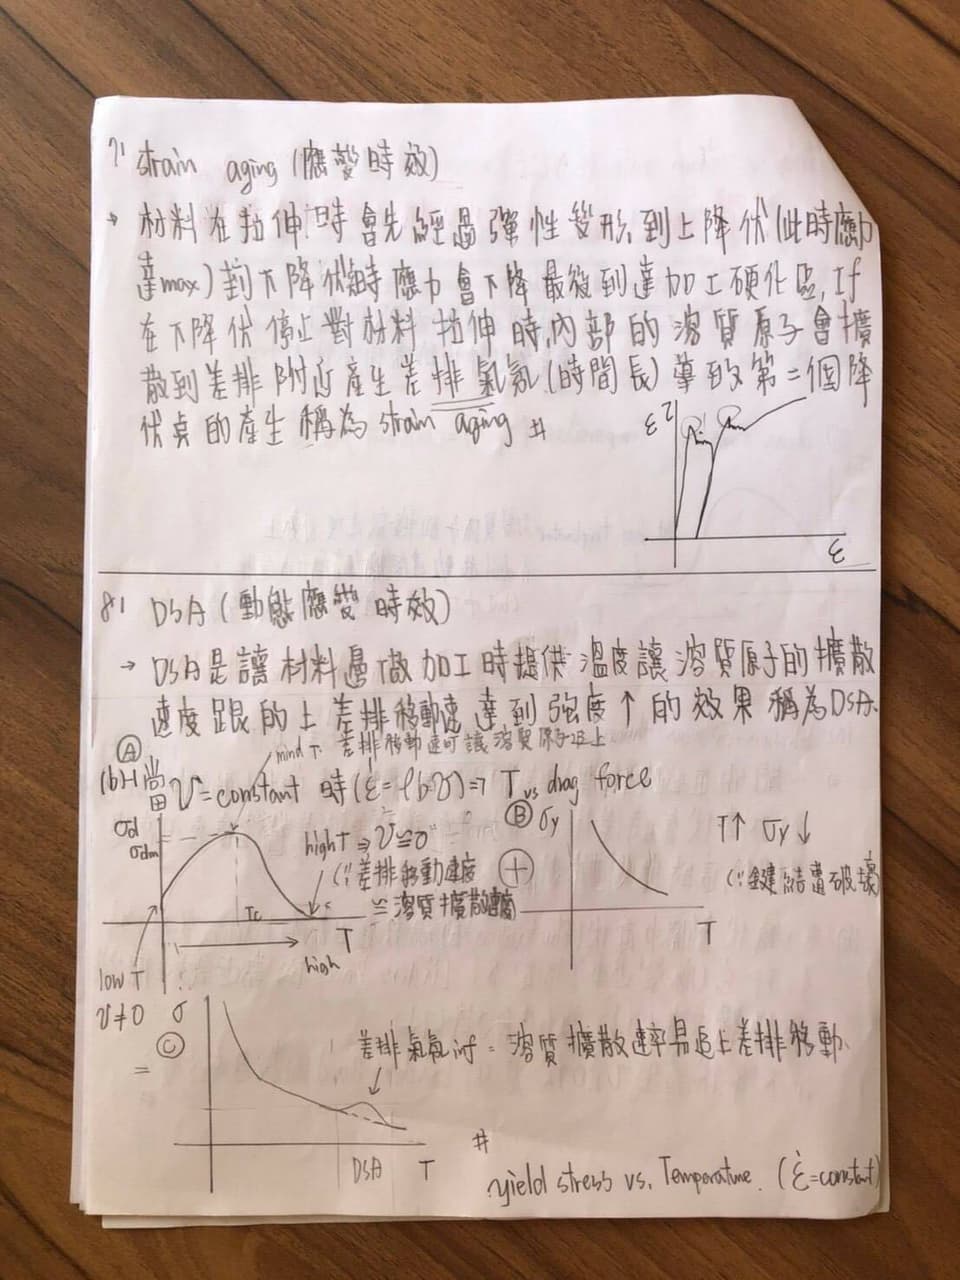 7、strain aging (應變時效)
→ 材料在拉伸時會先經過彈性變形,到上降伏(此時應力
達max)到下降伏時應力會下降最後到達加工硬化區,If
在下降伏停止對材料拉伸時,內部的溶質原子會擴
散到差排附近產生差排氣氛(時間長)導致第二個降
伏点的產生稱為strain aging #
ε
8、DSA (動態應變時效)
→ DSA是讓材料邊做加工時提供溫度讓溶質原子的擴散
速度跟的上差排移動速達到強度↑的效果稱為DSA.
Ⓐ mind T. 差排移動速可讓溶質原子追上
當 V=constant 時 (ε̇=ρbV) ⇒ T vs drag force
σd
σdm
Tc
T
high T ⇒ V≌0
(∵差排移動速度
≌溶質擴散速度
high
low T
V≠0
⊕
Ⓑ σy
T
T↑ σy↓
(∵鍵結遭破壞)
=
Ⓒ σ
差排氣氛 inf = 溶質擴散速率易追上差排移動.
DSA T
#
yield stress vs. Temperature. (ε̇=constant)